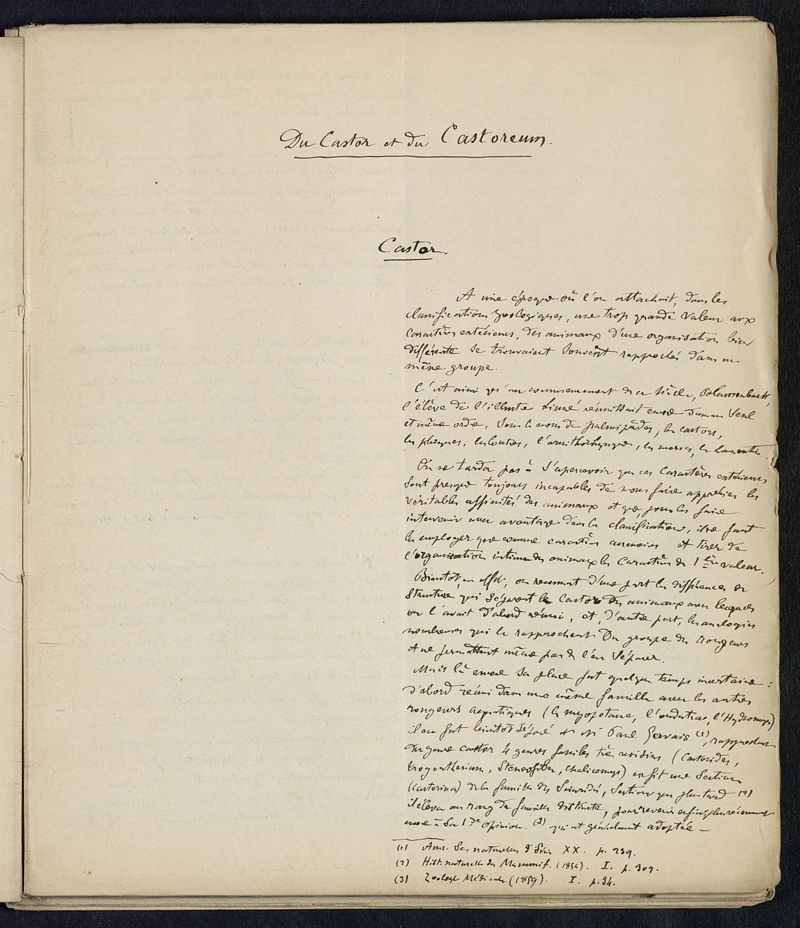 Du Castor et du Castoreum.
Castor.
A une époque où l'on attachait, dans les
classifications zoologiques, une trop grande valeur aux
caractères extérieurs, des animaux d'une organisation bien
différente se trouvaient souvent rapprochés dans un
même groupe.
C'est ainsi qu'au commencement de ce siècle, Blumenbach,
l'élève de l'illustre Linné réunissait encore dans un seul
et même ordre, sous le nom de palmipèdes, les castors,
les phoques, les loutres, l'ornithorhynque, les morses, les lamentins.
On ne tarda pas à s'apercevoir que ces caractères extérieurs
sont presque toujours incapables de nous faire apprécier les
véritables affinités des animaux et que, pour les faire
intervenir avec avantage dans la classification, il ne faut
les employer que comme caractères accessoires et tirer de
l'organisation intime des animaux les caractères de 1ère valeur.
Bientôt, en effet, on reconnut d'une part les différences de
structure qui séparent le Castor des animaux avec lesquels
on l'avait d'abord réuni, et, d'autre part, les analogies
nombreuses qui le rapprochent du groupe des Rongeurs
et ne permettent même pas de l'en séparer.
Mais là encore sa place fut quelque temps incertaine :
d'abord réuni dans une même famille avec les autres
rongeurs aquatiques (le myopotame, l'ondatra, l'Hydromys)
il en fut bientôt séparé et Mr Paul Gervais (1), rapprochant
du genre castor 4 genres fossiles très voisins (Castoroides,
trogontherium, Steneofiber, chalicomys) en fit une Section
(castorina) de la famille des Sciuridés, Section que plus tard (2)
il éleva au rang de famille distincte, pour revenir enfin plus récemment
encore à sa 1ère opinion (3) qui est généralement adoptée —
(1) Ann. Sc. naturelles 3e Série XX. p. 239.
(2) Hist. naturelle des Mammif. (1854). I. p. 309.
(3) Zoologie Médicale (1859). I. p. 34.